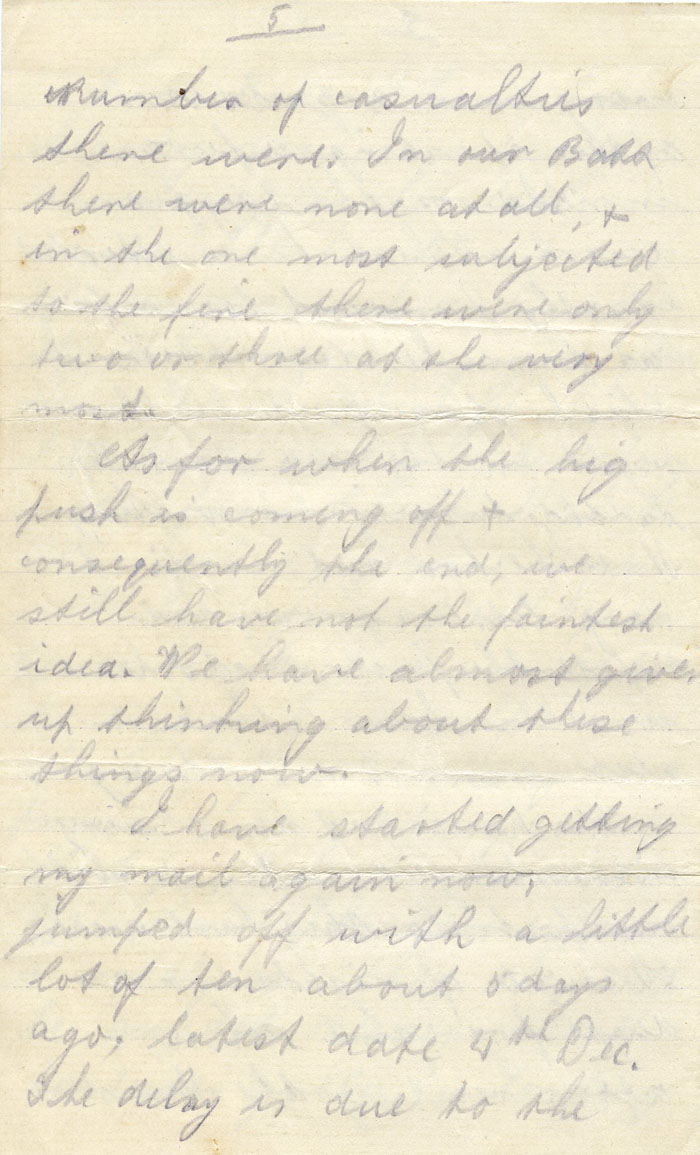 5
number of casualties
there were. In our Batt
there were none at all, +
in the one most subjected
to the fire there were only
two or three at the very
most.
As for when the big
push is coming off +
consequently the end, we
still have not the faintest
idea. We have almost given
up thinking about these
things now.
I have started getting
my mail again now,
jumped off with a little
lot of ten about 5 days
ago, latest date 4th Dec.
The delay is due to the